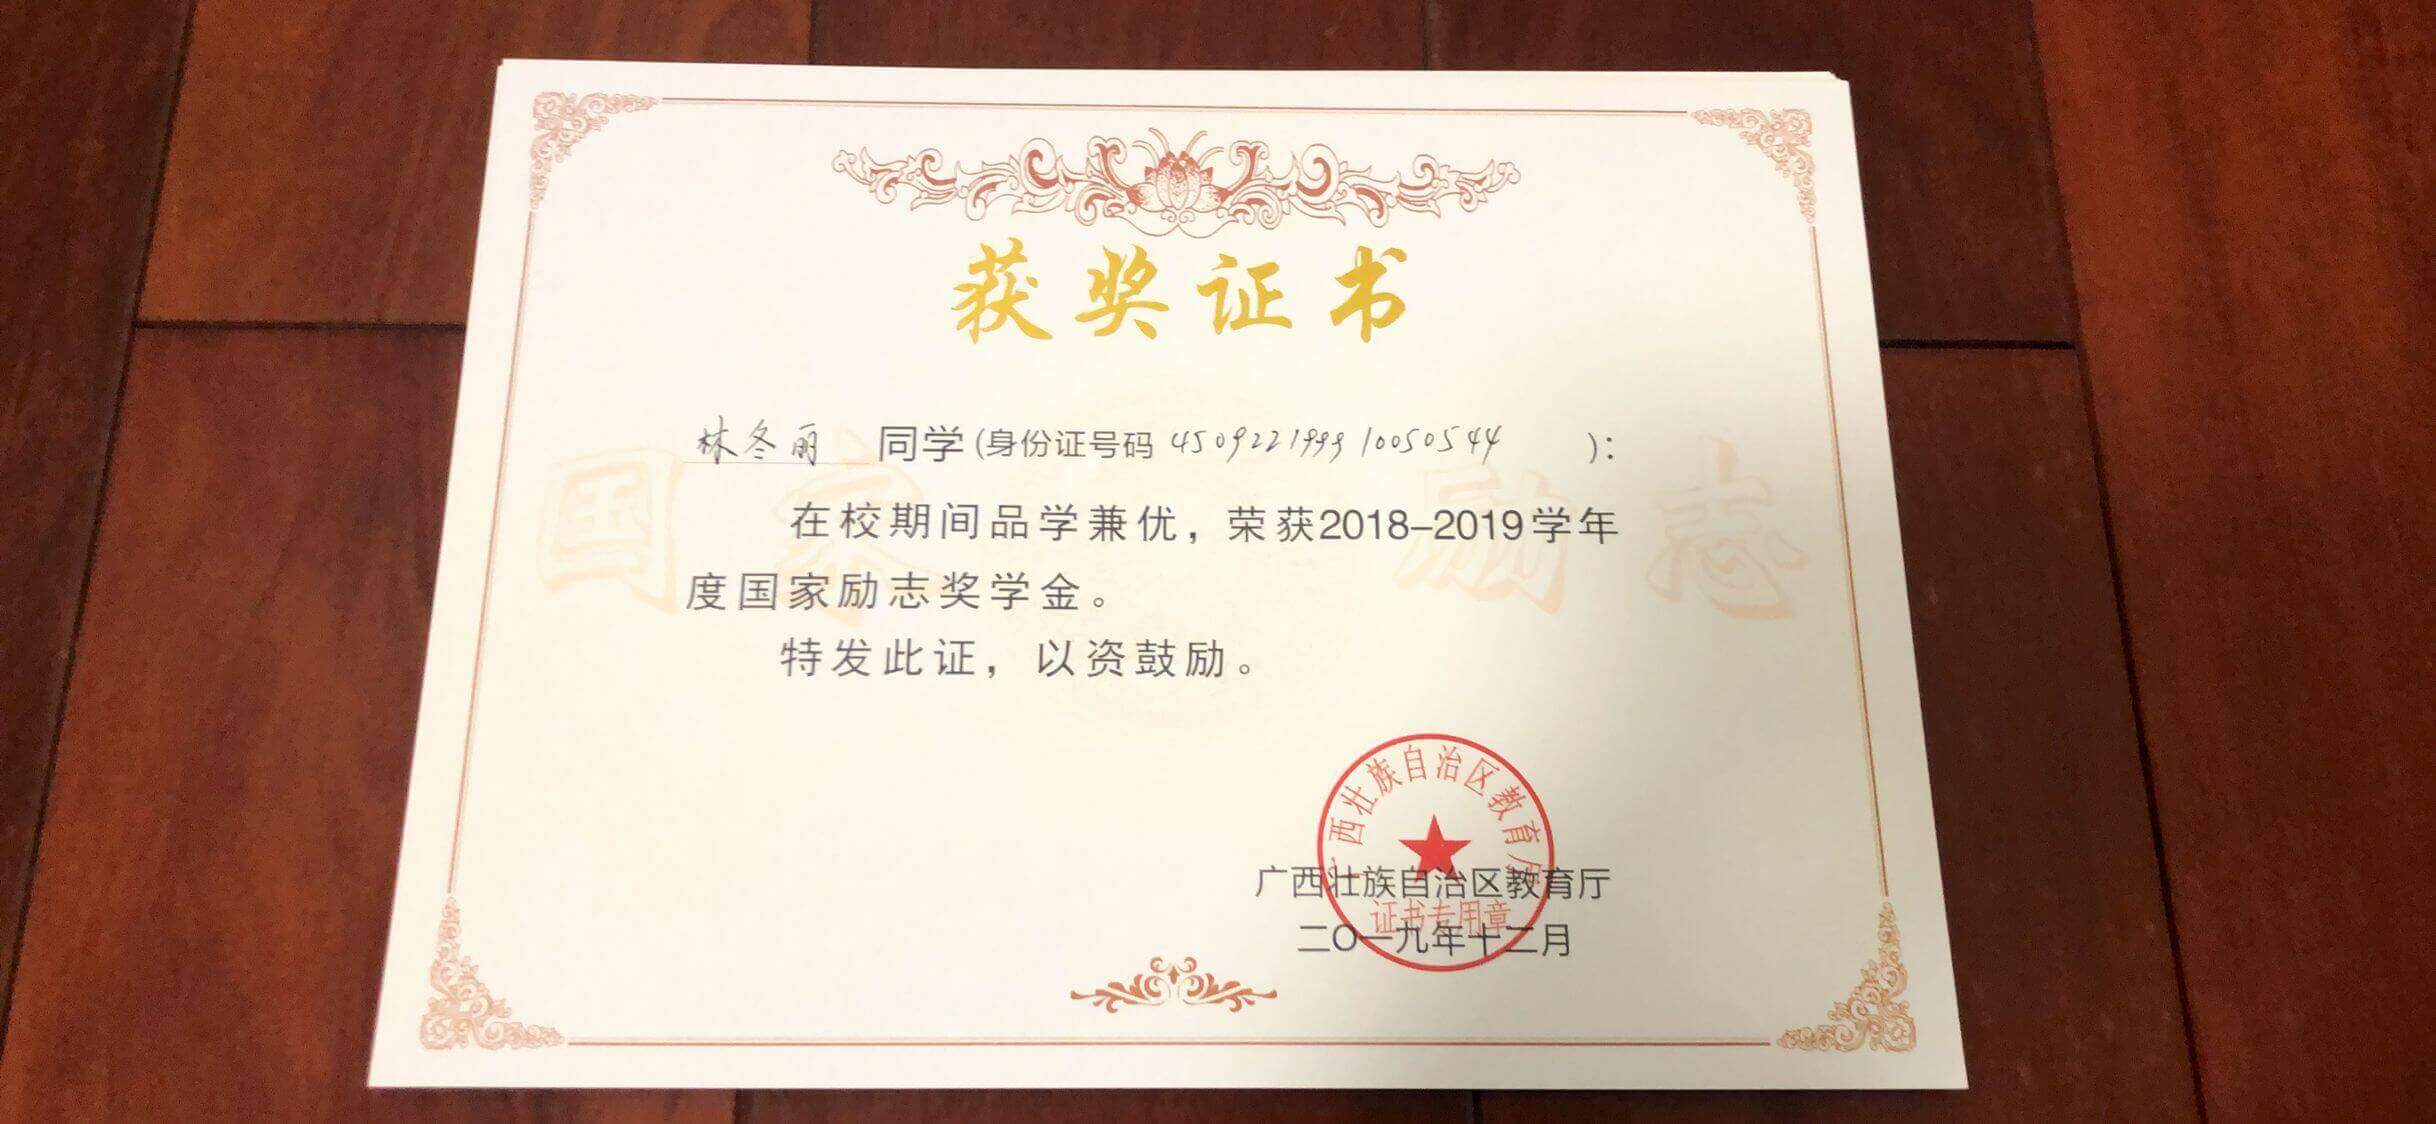 获奖证书
林冬丽 同学(身份证号码 450922199910050544 ):
在校期间品学兼优，荣获2018-2019学年
度国家励志奖学金。
特发此证，以资鼓励。
国家励志
广西壮族自治区教育厅
证书专用章
广西壮族自治区教育厅
二〇一九年十二月